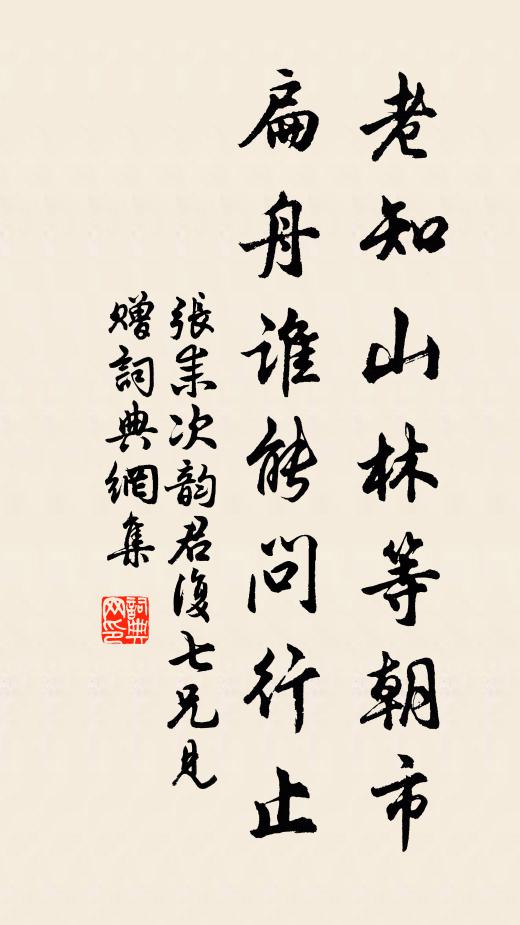 老知山林等朝市
扁舟誰能問行止
張耒次韵君復七兄見
贈詞典網集
詞典
网印